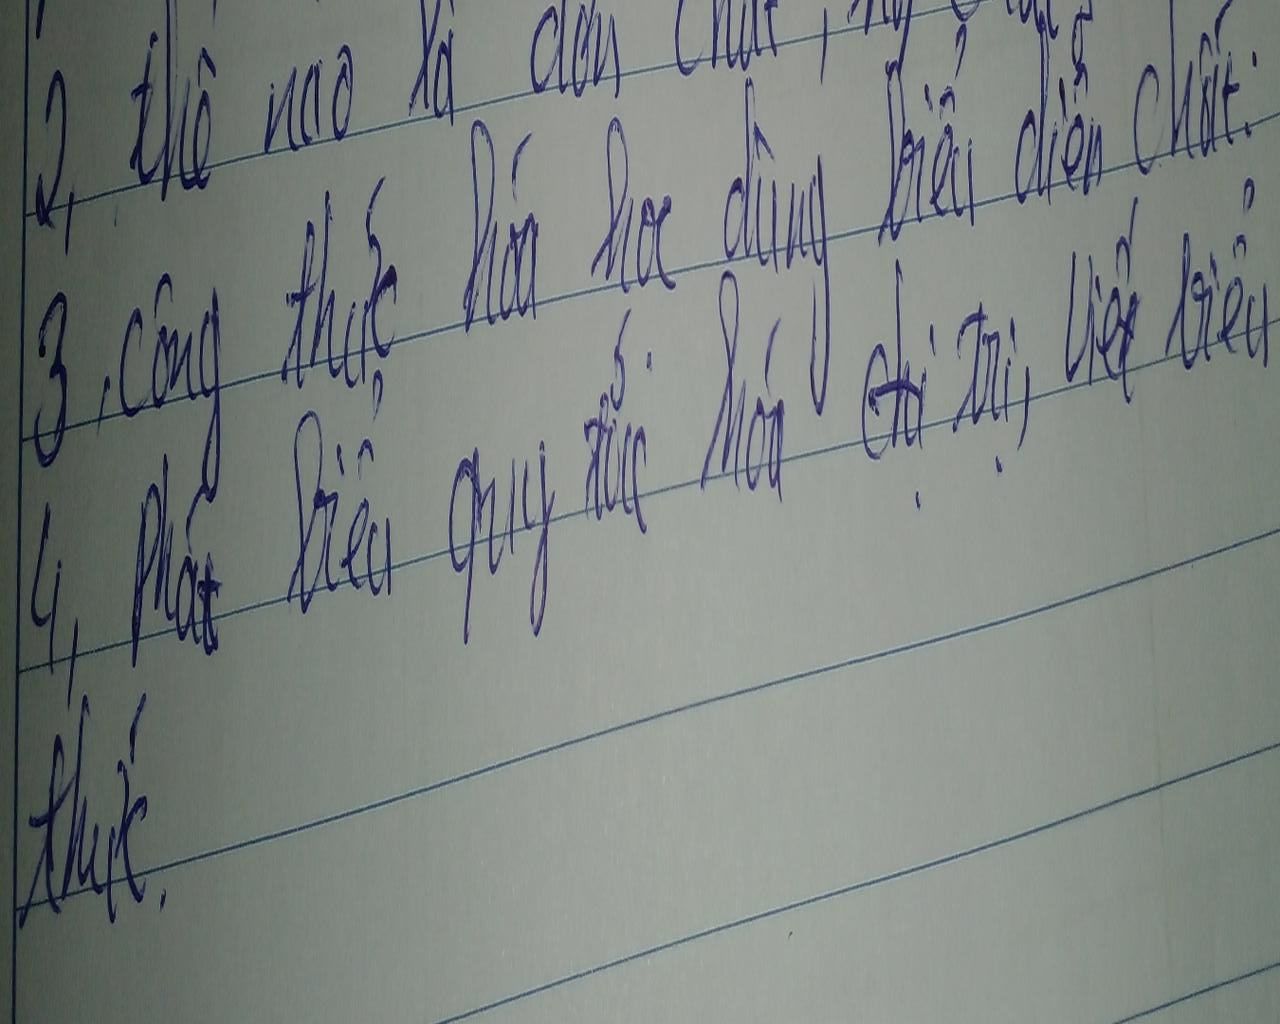 2, thế nào là đơn chất,
3. công thức hóa học dùng biểu diễn chất:
4, phát biểu quy tắc hóa trị, viết biểu
thức.